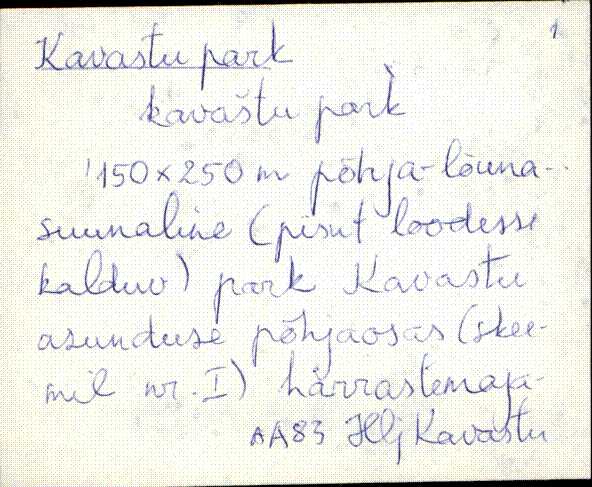 1
Kavastu park
kavaštu park̀
150x250 m põhja-lõuna-
suunaline (pisut loodesse
kalduv) park Kavastu
asunduse põhjaosas (skee-
mil nr. I) härrastemaja-
AA83 Hlj Kavastu